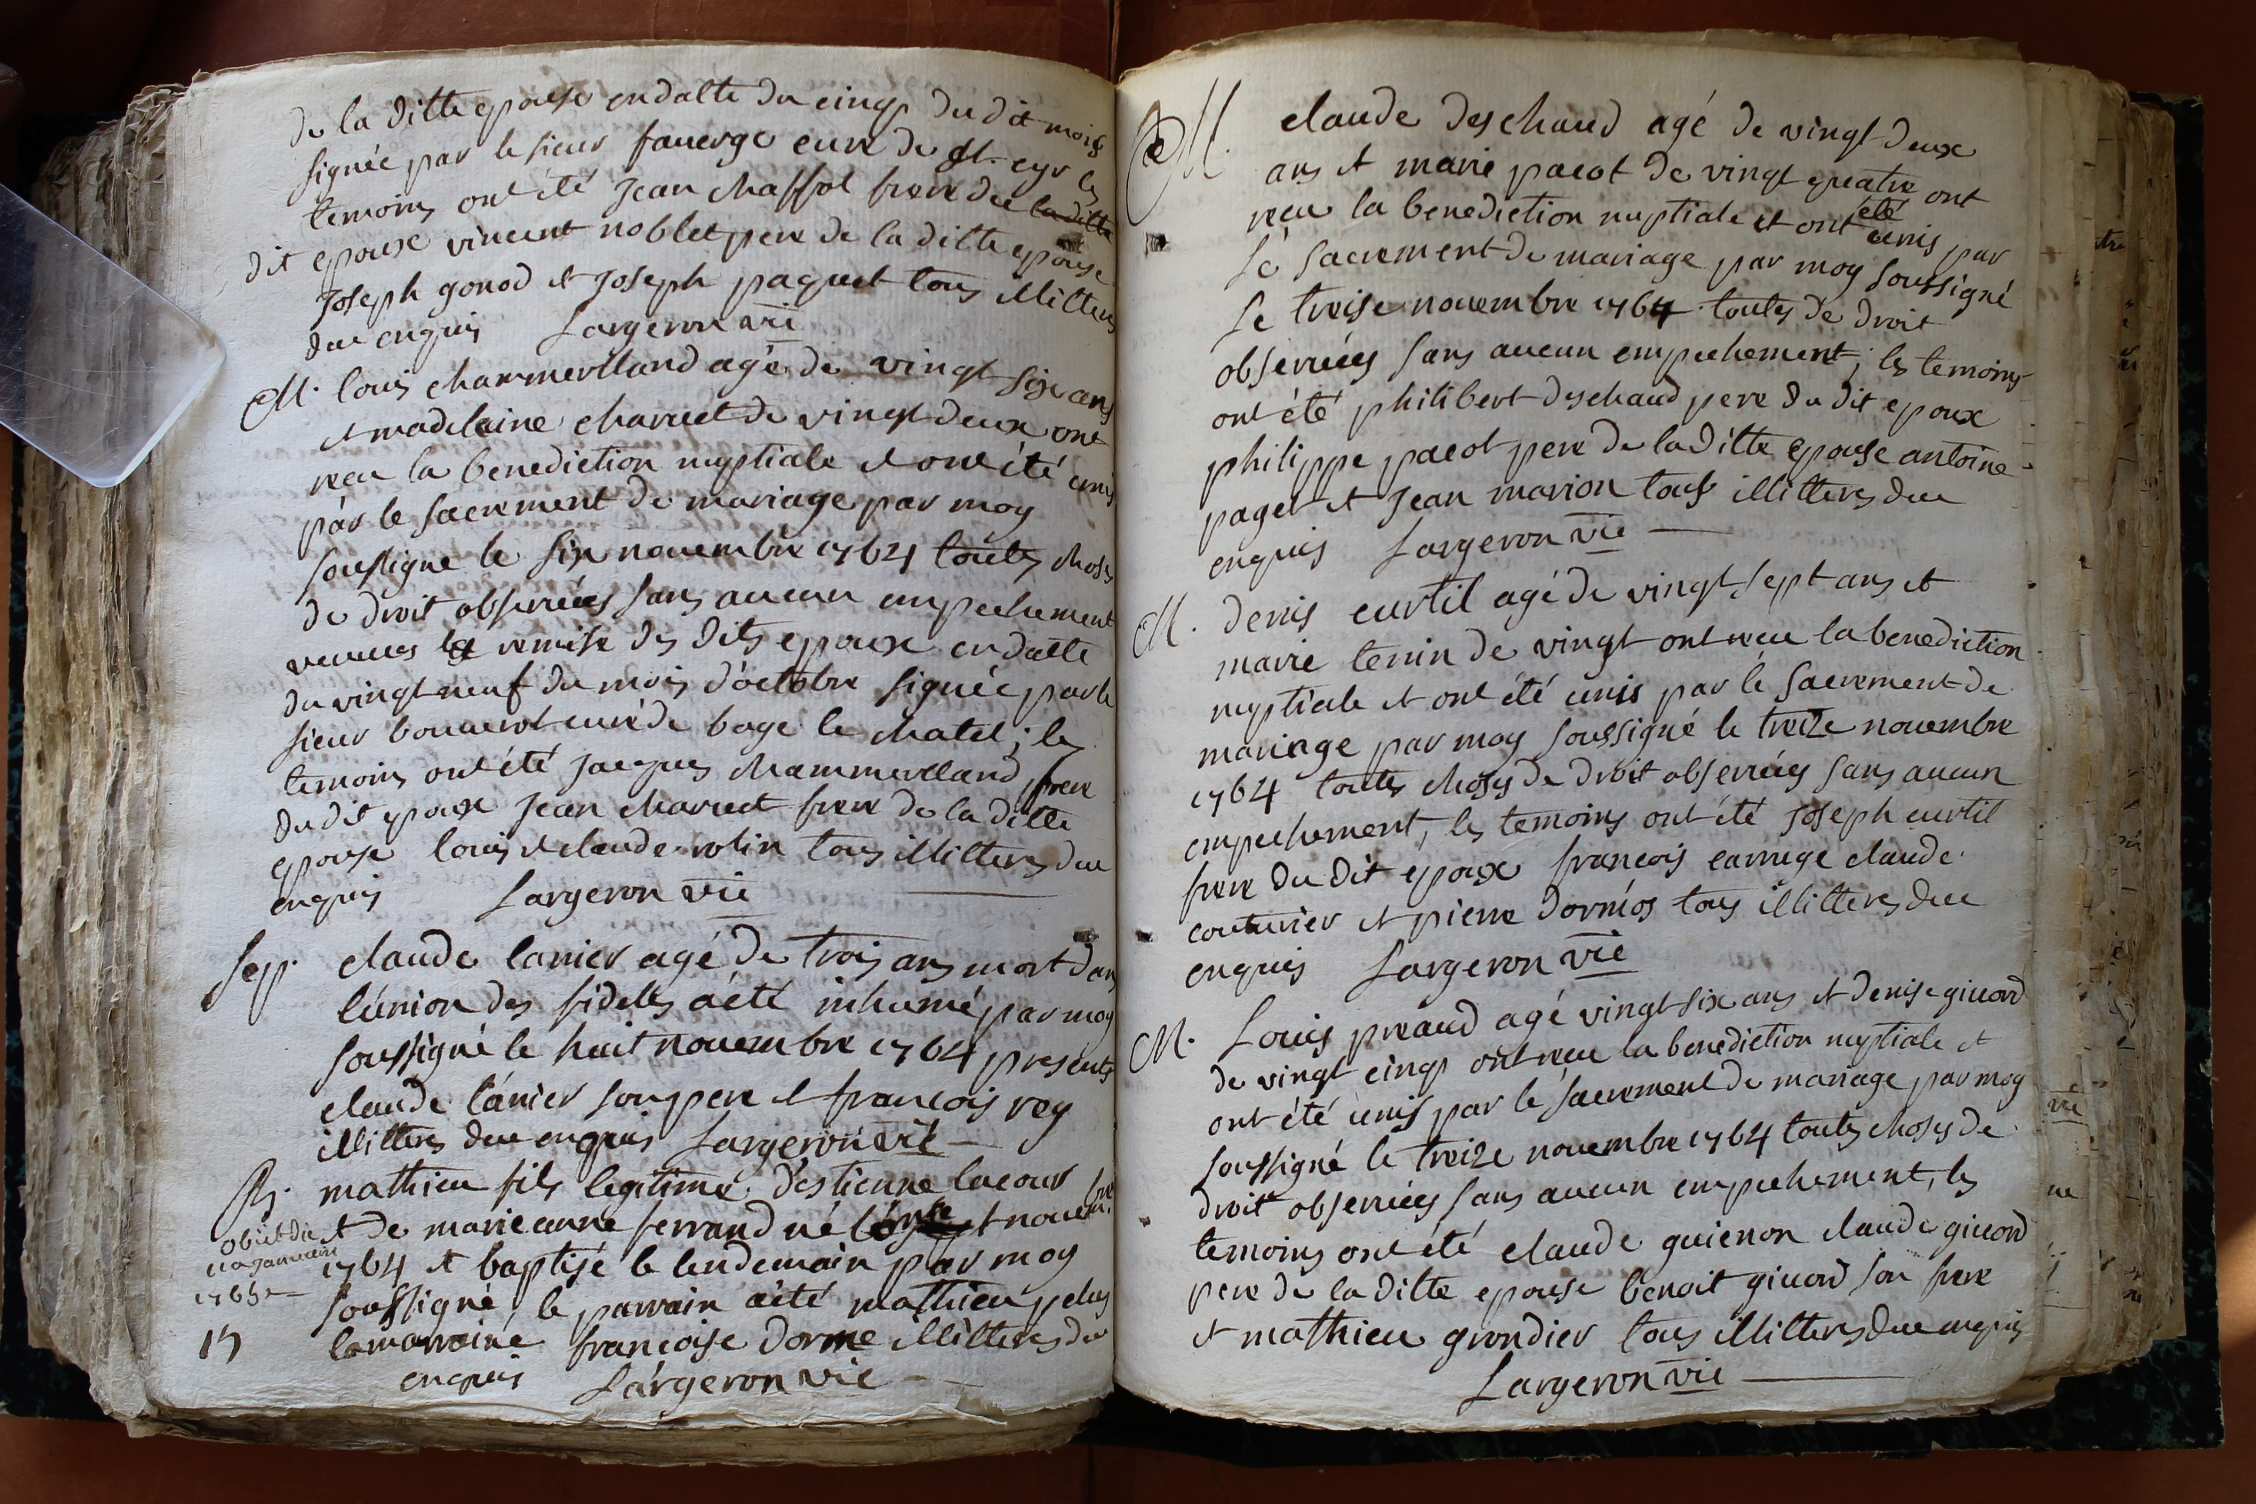 de la ditte epouse en datte du cinq du dit mois
signée par le sieur fauerge cure de st. cyr les
temoins ont été Jean chassot frere du la ditte
dit epoux vincent noblet pere de la ditte epouse
Joseph gonod et Joseph paquet tous illitteres
due enquis Largeron vic
M. louis chammerlland agé de vingt six ans
et madelaine charuet de vingt deux ont
recu la benediction nuptiale et ont été unis
par le sacrement de mariage par moy
soussigne le six nouembre 1764 toutes choses
de droit obseruées sans aucun empechement
veues la remise des dits epoux en datte
du vingt neuf du mois d'octobre signée par le
sieur bouuerot curé de bage le chatel; les
temoins ont été jacques chammerlland frere
du dit epoux Jean charuet frere de la ditte
epouse louis et claude rolin tous illitteres due
enquis Largeron vic
Sep. claude lanier agé de trois ans mort dans
l'union des fidelles a été inhumé par moy
soussigné le huit nouembre 1764 presents
claude lanier son pere et francois rey
illitteres due enquis Largeron vic
B. mathieu fils legitime d'estienne lacour
et de marie anne ferrand né l'onse nouembre
obiit die
11a januarii
1765
1764 et baptisé le lendemain par moy
soussigné, le parrain a été mathieu pelus
17
la marraine francoise dorme illitteres due
enquis Largeron vic
M. claude deschaud agé de vingt deux
ans et marie pacot de vingt quatre ont
recu la benediction nuptiale et ont été unis par
le sacrement de mariage par moy soussigné
le treise nouembre 1764 toutes de droit
obseruées sans aucun empechement; les temoins
ont été philibert deschaud pere du dit epoux
philippe pacot pere de la ditte epouse antoine
paget et Jean marion tous illitteres due
enquis Largeron vic
M. denis curtil agé de vingt sept ans et
marie tenin de vingt ont recu la benediction
nuptiale et ont été unis par le sacrement de
mariage par moy soussigné le treize nouembre
1764 toutes choses de droit obseruées sans aucun
empechement, les temoins ont été Joseph curtil
frere du dit epoux francois carruge claude
couturier et pierre dormos tous illitteres due
enquis Largeron vic
M. Louis preaud agé vingt six ans et denise giuord
de vingt cinq ont recu la benediction nuptiale et
ont été unis par le sacrement de mariage par moy
soussigné le treize nouembre 1764 toutes choses de
droit obseruées sans aucun empechement, les
temoins ont été claude guienon claude giuord
pere de la ditte epouse benoit giuord son frere
et mathieu grondier tous illitteres due enquis
Largeron vic